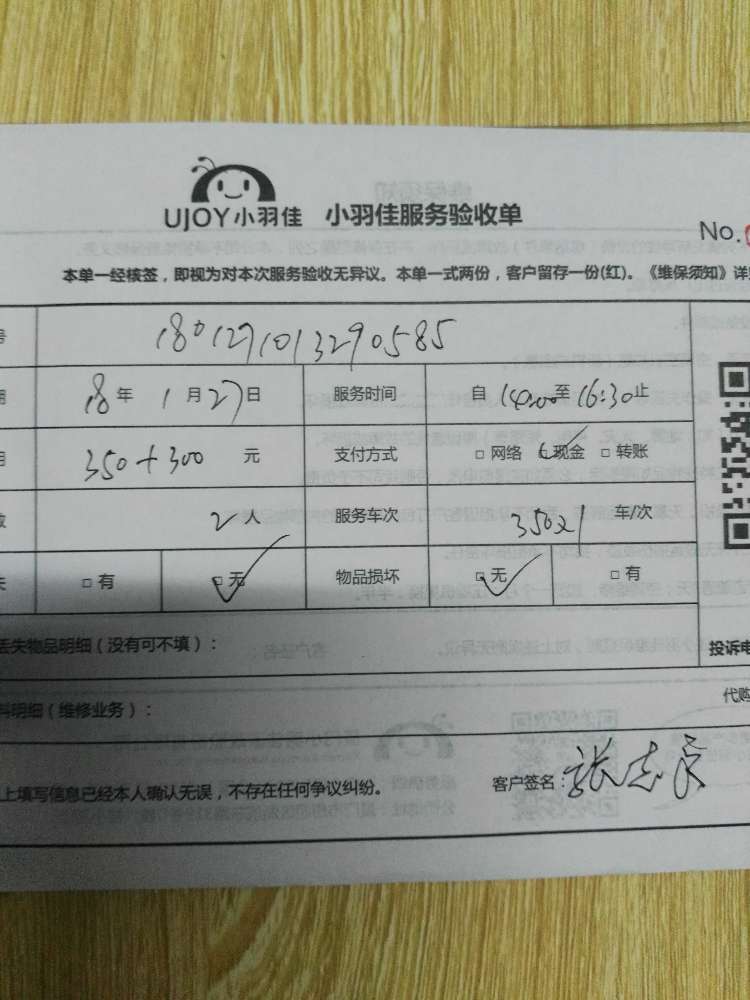 UJOY小羽佳 小羽佳服务验收单
No.
本单一经核签，即视为对本次服务验收无异议。本单一式两份，客户留存一份(红)。《维保须知》详
号 1801271013290585
期 18年 1月27日 服务时间 自14:00至16:30止
用 350+300 元 支付方式 □网络 □现金 □转账
数 2人 服务车次 350x1 车/次
失 □有 □无 物品损坏 □无 □有
丢失物品明细（没有可不填）：
投诉电
代购
料明细（维修业务）：
上填写信息已经本人确认无误，不存在任何争议纠纷。
客户签名：张志